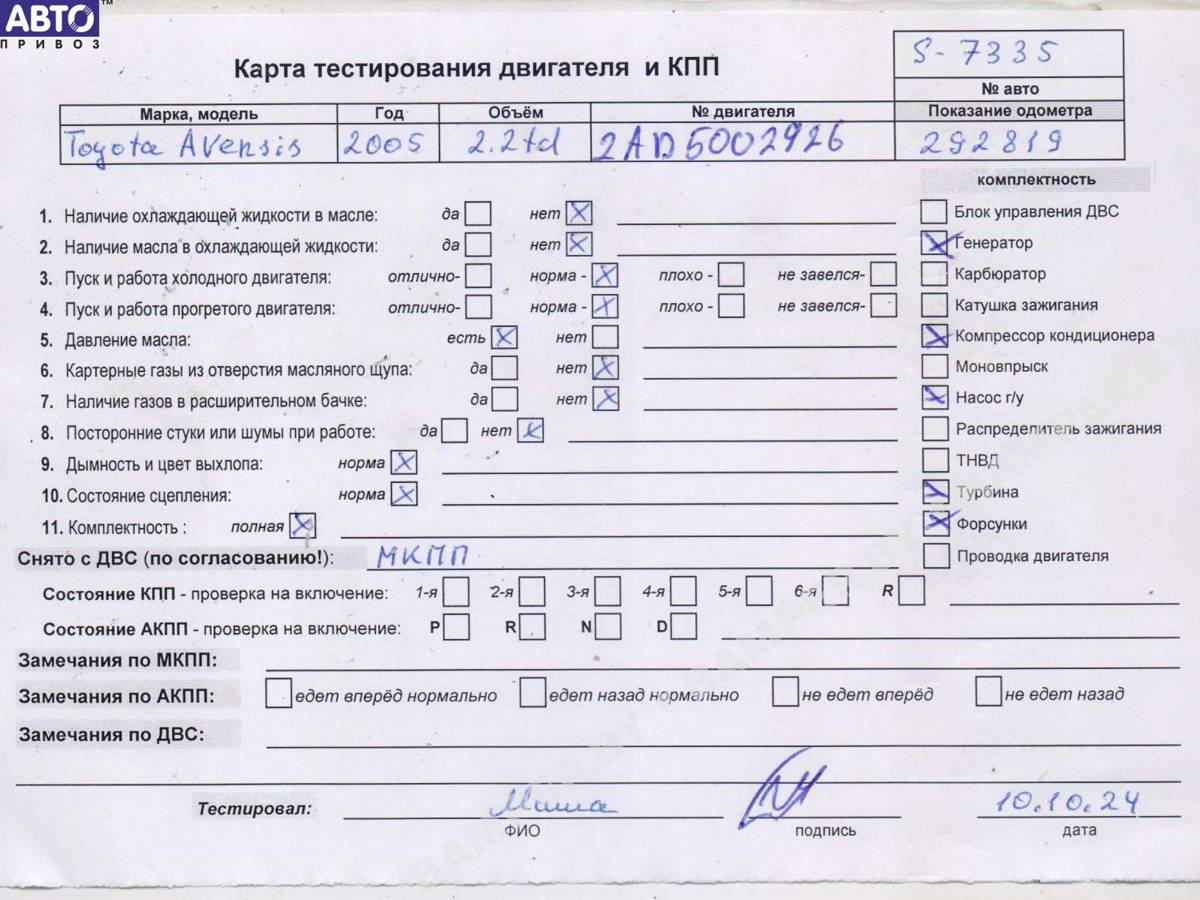 АВТО™
ПРИВОЗ
Карта тестирования двигателя и КПП
S-7335
№ авто
Марка, модель Год Объём № двигателя Показание одометра
Toyota Avensis 2005 2.2td 2AD5002926 292819
комплектность
1. Наличие охлаждающей жидкости в масле: да нет
Блок управления ДВС
2. Наличие масла в охлаждающей жидкости: да нет
Генератор
3. Пуск и работа холодного двигателя: отлично- норма - плохо - не завелся-
Карбюратор
4. Пуск и работа прогретого двигателя: отлично- норма - плохо - не завелся-
Катушка зажигания
5. Давление масла: есть нет
Компрессор кондиционера
6. Картерные газы из отверстия масляного щупа: да нет
Моновпрыск
7. Наличие газов в расширительном бачке: да нет
Насос г/у
8. Посторонние стуки или шумы при работе: да нет
Распределитель зажигания
9. Дымность и цвет выхлопа: норма
ТНВД
10. Состояние сцепления: норма
Турбина
11. Комплектность : полная
Форсунки
Снято с ДВС (по согласованию!): МКПП
Проводка двигателя
Состояние КПП - проверка на включение: 1-я 2-я 3-я 4-я 5-я 6-я R
Состояние АКПП - проверка на включение: P R N D
Замечания по МКПП:
Замечания по АКПП: едет вперёд нормально едет назад нормально не едет вперёд не едет назад
Замечания по ДВС:
Тестировал: Миша 10.10.24
ФИО подпись дата
BAMPER.BY